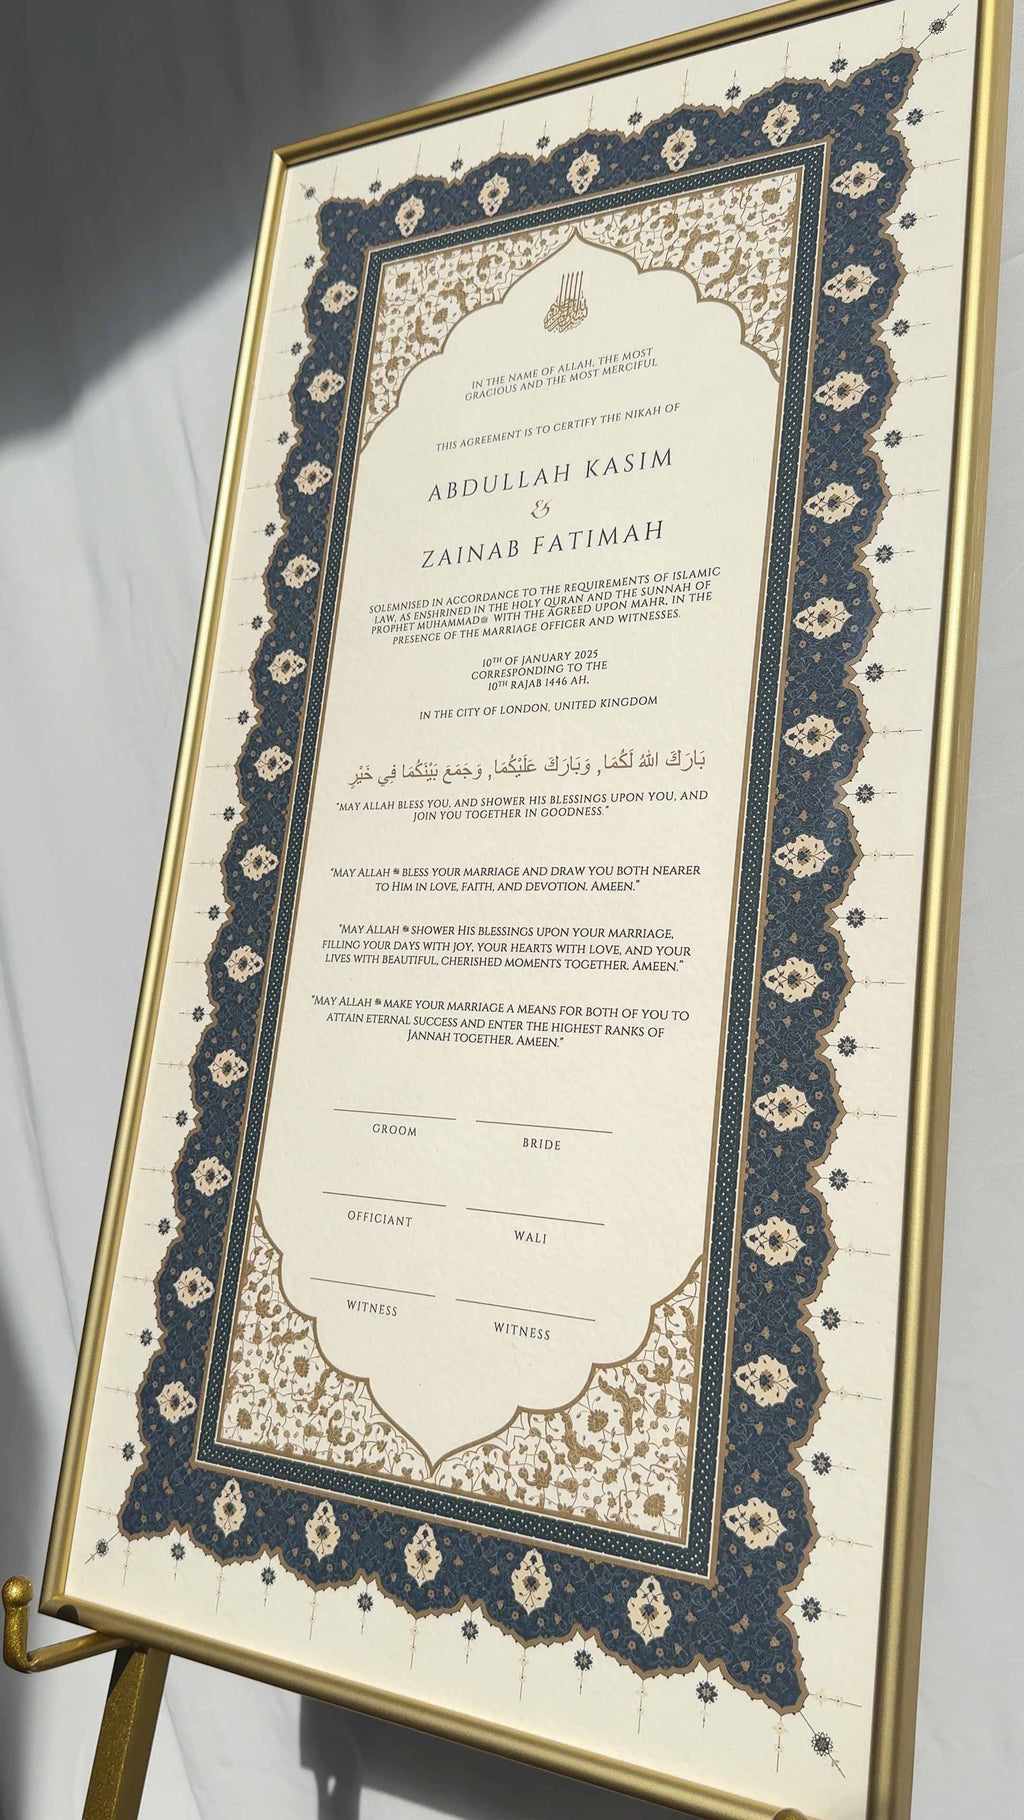 IN THE NAME OF ALLAH, THE MOST
GRACIOUS AND THE MOST MERCIFUL
THIS AGREEMENT IS TO CERTIFY THE NIKAH OF
ABDULLAH KASIM
&
ZAINAB FATIMAH
SOLEMNISED IN ACCORDANCE TO THE REQUIREMENTS OF ISLAMIC
LAW, AS ENSHRINED IN THE HOLY QURAN AND THE SUNNAH OF
PROPHET MUHAMMADﷺ WITH THE AGREED UPON MAHR, IN THE
PRESENCE OF THE MARRIAGE OFFICER AND WITNESSES.
10TH OF JANUARY 2025
CORRESPONDING TO THE
10TH RAJAB 1446 AH,
IN THE CITY OF LONDON, UNITED KINGDOM
بَارَكَ اللهُ لَكُمَا, وَبَارَكَ عَلَيْكُمَا, وَجَمَعَ بَيْنَكُمَا فِي خَيْرٍ
"MAY ALLAH BLESS YOU, AND SHOWER HIS BLESSINGS UPON YOU, AND
JOIN YOU TOGETHER IN GOODNESS."
"MAY ALLAH BLESS YOUR MARRIAGE AND DRAW YOU BOTH NEARER
TO HIM IN LOVE, FAITH, AND DEVOTION. AMEEN."
"MAY ALLAH SHOWER HIS BLESSINGS UPON YOUR MARRIAGE,
FILLING YOUR DAYS WITH JOY, YOUR HEARTS WITH LOVE, AND YOUR
LIVES WITH BEAUTIFUL, CHERISHED MOMENTS TOGETHER. AMEEN."
"MAY ALLAH MAKE YOUR MARRIAGE A MEANS FOR BOTH OF YOU TO
ATTAIN ETERNAL SUCCESS AND ENTER THE HIGHEST RANKS OF
JANNAH TOGETHER. AMEEN."
GROOM
BRIDE
OFFICIANT
WALI
WITNESS
WITNESS